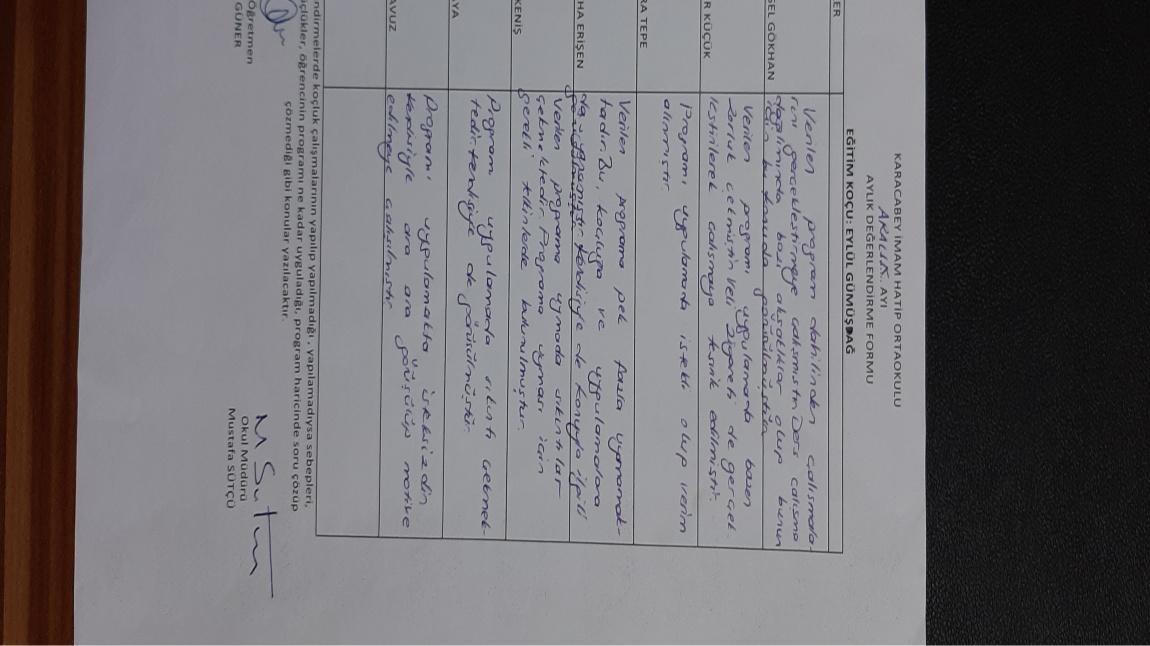 KARACABEY İMAM HATİP ORTAOKULU
ARALIK AYI
AYLIK DEĞERLENDİRME FORMU
EĞİTİM KOÇU: EYLÜL GÜMÜŞDAĞ
LER
SEL GÖKHAN
Verilen program dahilinden çalışmala-
rını gerçekleştirmeye çalışmıştır. Ders çalışma
dağılımında bazı aksaklıklar olup bunun
için bu konuda görüşülmüştür.
R KÜÇÜK
Verilen programı uygulamakta bazen
zorluk çekmiştir. Veli ziyareti de gerçek-
leştirilerek çalışmaya teşvik edilmiştir.
RA TEPE
Programı uygulamakta istekli olup verim
alınmıştır.
HA ERİŞEN
Verilen programa pek fazla uymamak-
tadır. Bu, koçluğa ve uygulamalara
da yansımıştır. Kendisiyle de konuyla ilgili
görüşülmüştür.
KENİŞ
Verilen programa uymada sıkıntılar
çekmektedir. Programa uyması için
gerekli telkinlerde bulunulmuştur.
AYA
Program uygulamada sıkıntı çekmek-
tedir. Kendisiyle de görüşülmüştür.
AVUZ
Programı uygulamakta isteksizdir.
Kendisiyle ara ara görüşülüp motive
edilmeye çalışılmıştır.
ndirmelerde koçluk çalışmalarının yapılıp yapılmadığı, yapılamadıysa sebepleri,
çlükler, öğrencinin programı ne kadar uyguladığı, program haricinde soru çözüp
çözmediği gibi konular yazılacaktır.
Öğretmen
GÜNER
M Sütçü
Okul Müdürü
Mustafa SÜTÇÜ